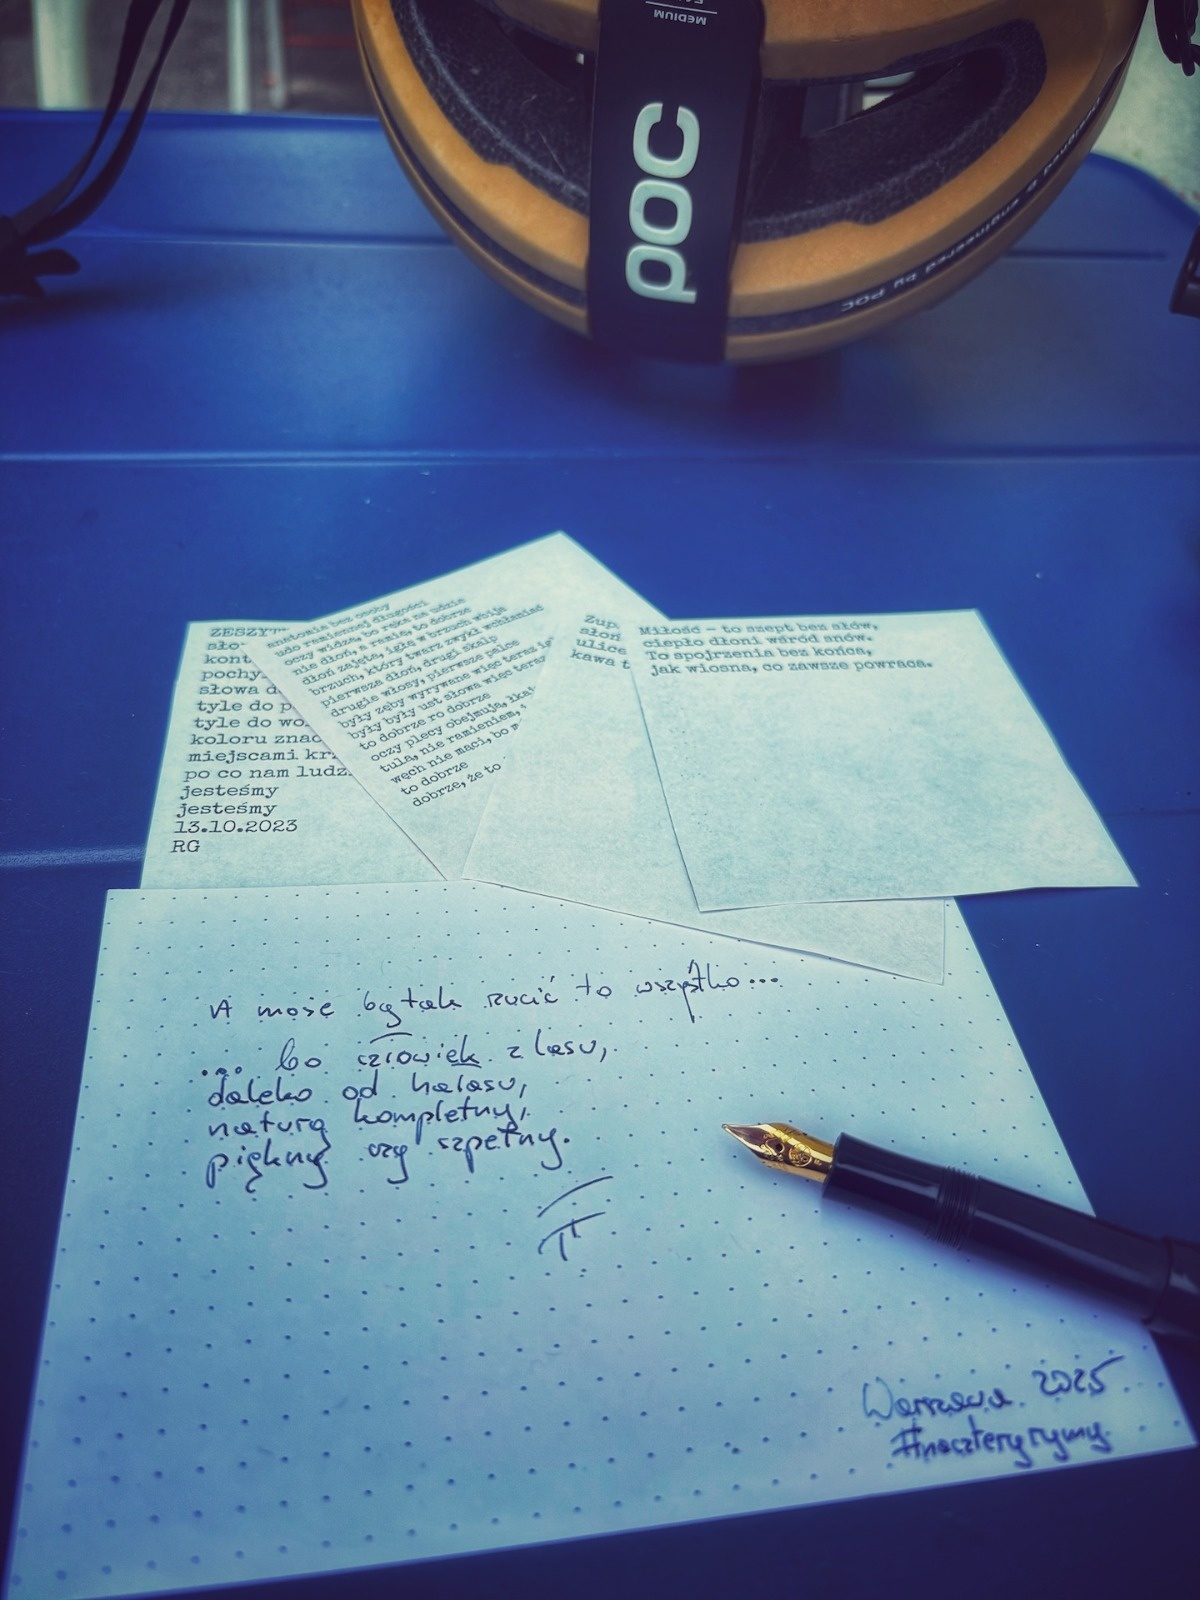 MEDIUM
POC
designed & engineered by POC
ZESZYT
sło
kont
pochy
słowa d
tyle do p
tyle do wo
koloru znac
miejscami krz
po co nam ludz
jesteśmy
jesteśmy
13.10.2023
RG
anatomia bez osoby
udo ramiennej długości
oczy widzę, bo ręka na udzie
nie dłoń, a ramię, to dobrze
dłoń zajęta, igłę w brzuch wbija
brzuch, który twarz zwykł wchłaniać
pierwsza dłoń, drugi skalp
drugie włosy, pierwsze palce
były zęby wyrywane więc teraz ię
były były ust słowa więc teraz
to dobrze ro dobrze
oczy plecy obejmują, łkaj
tula, nie ramieniem,
węch nie maci, bo
to dobrze
dobrze, że to
Zup
słoń
ulice
kawa t
Miłość – to szept bez słów,
ciepło dłoni wśród snów.
To spojrzenia bez końca,
jak wiosna, co zawsze powraca.
A może by tak rzucić to wszystko...
... bo człowiek z lasu,
daleko od hałasu,
naturą kompletny,
piękny czy szpetny.
Warszawa 2025
#naczteryrymy